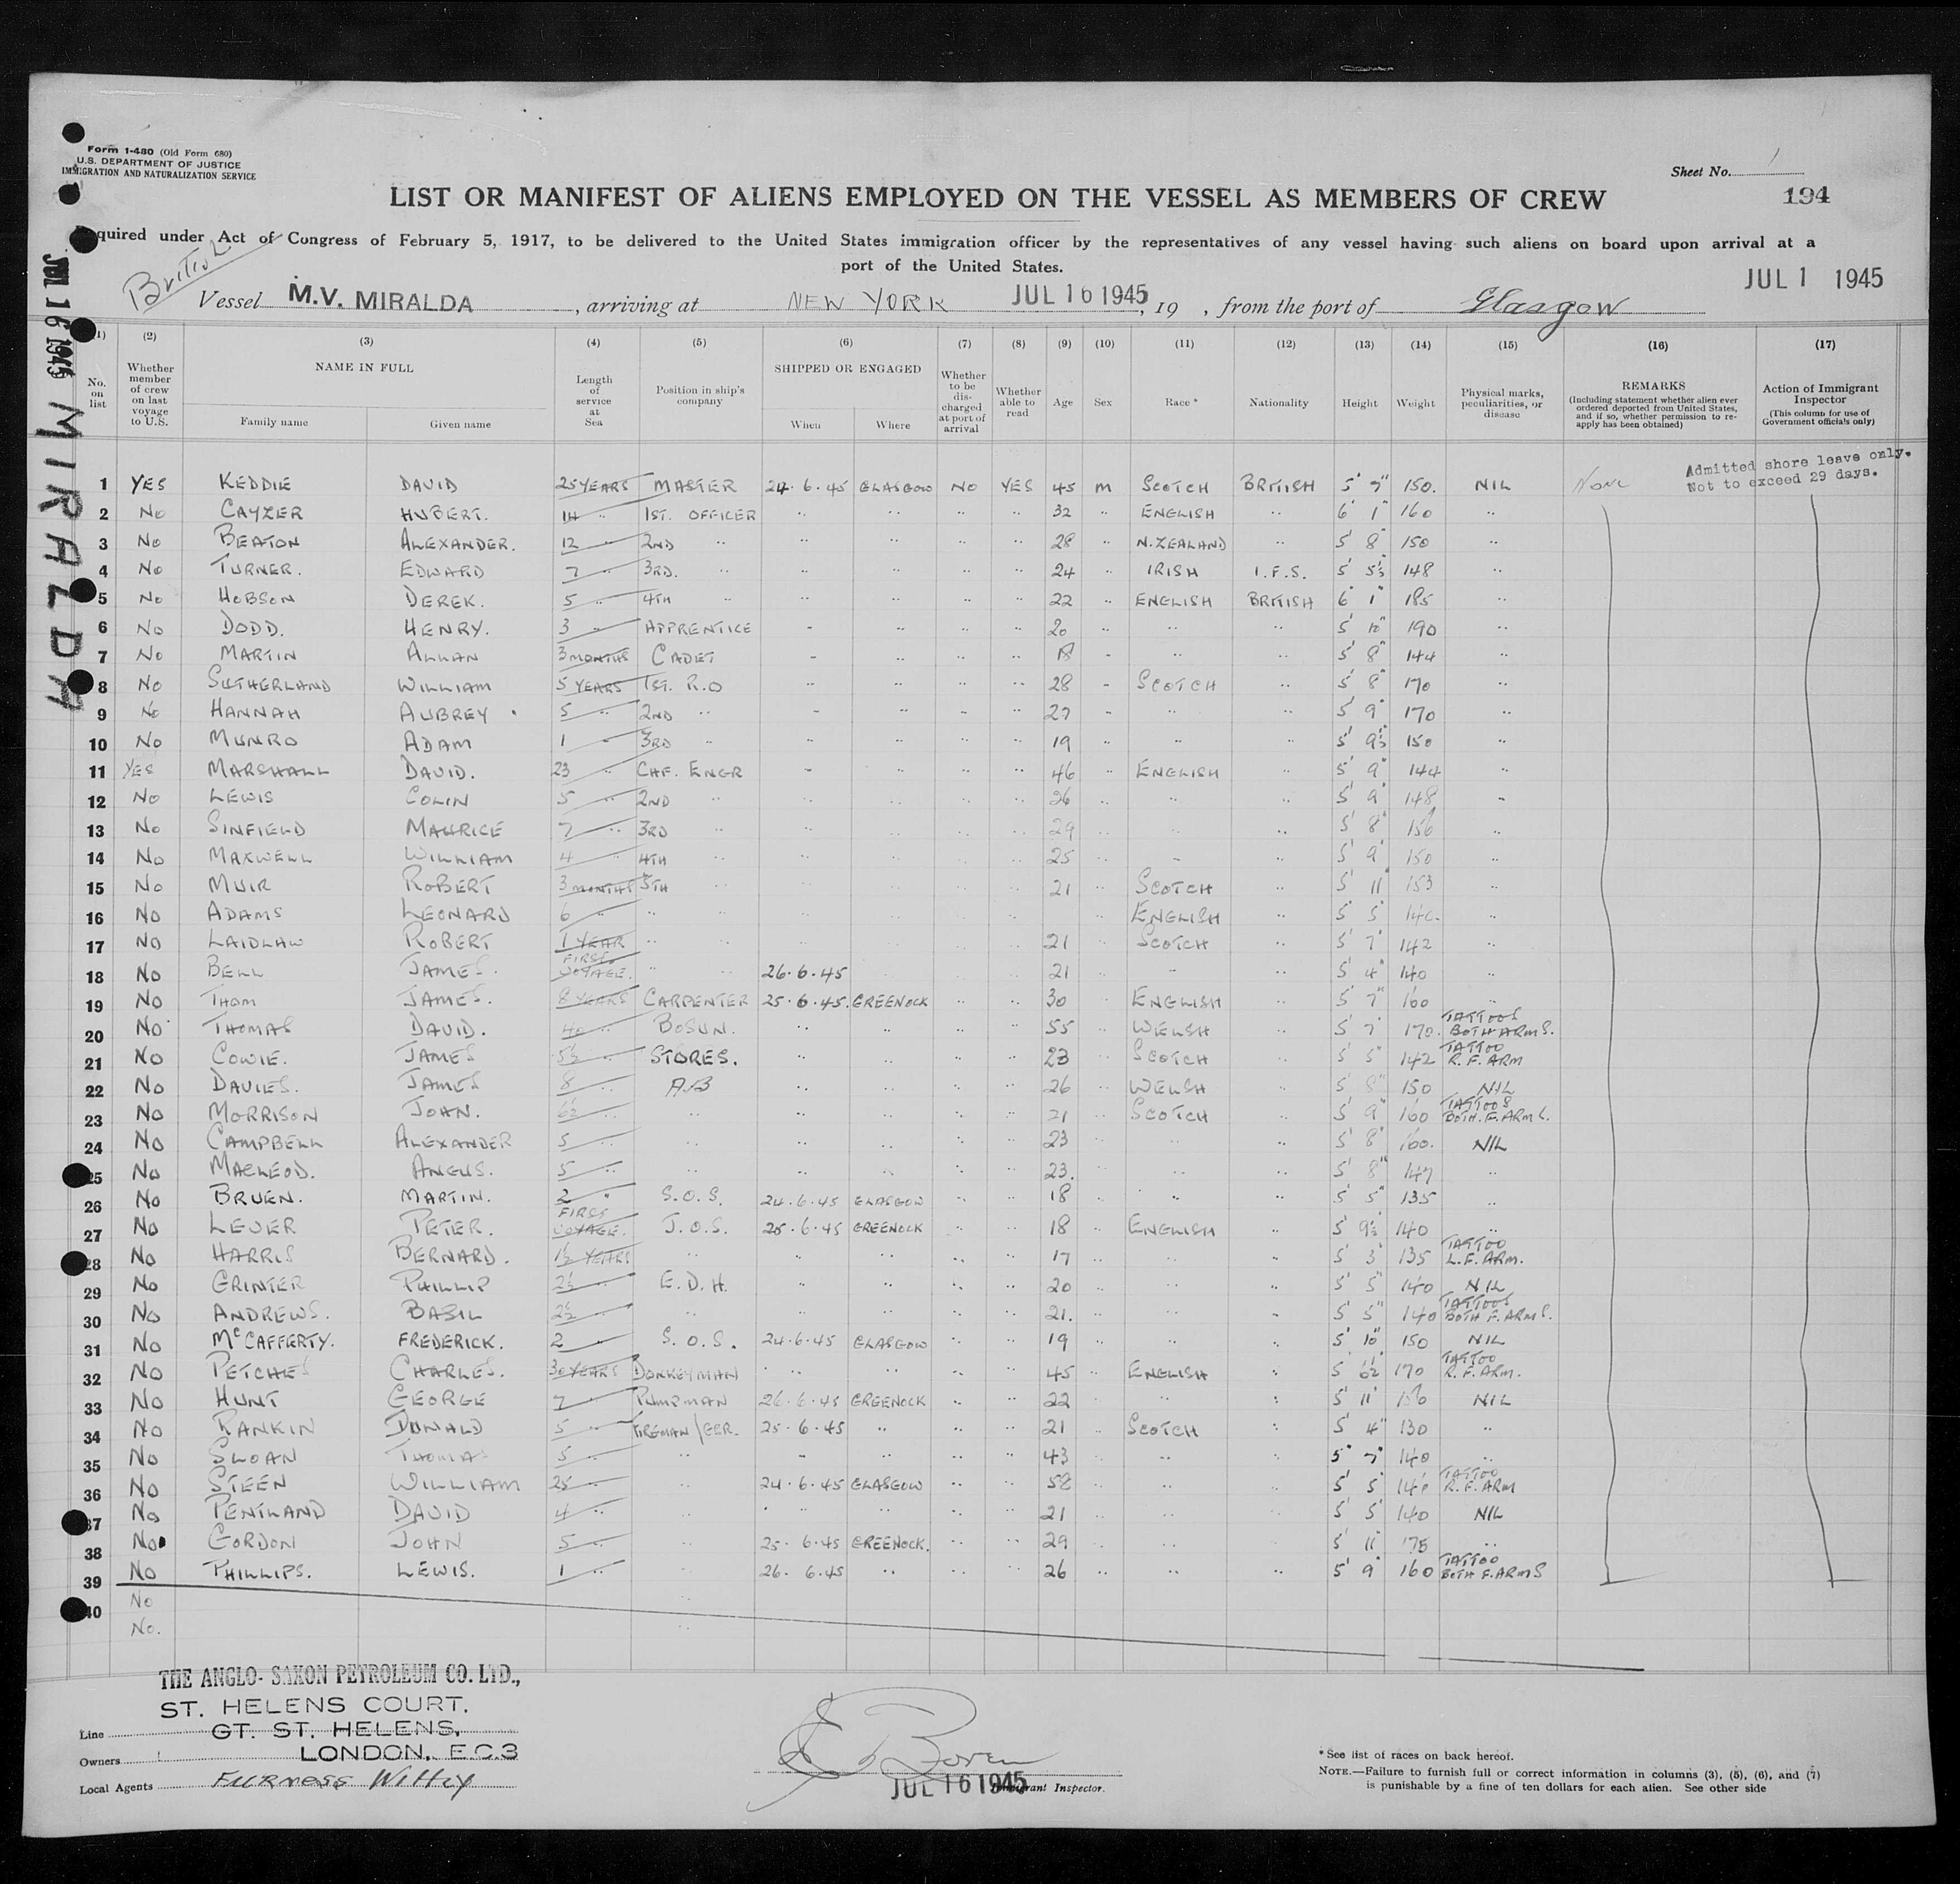 Form I-480 (Old Form 680)
U.S. DEPARTMENT OF JUSTICE
IMMIGRATION AND NATURALIZATION SERVICE
Sheet No. 1
194
LIST OR MANIFEST OF ALIENS EMPLOYED ON THE VESSEL AS MEMBERS OF CREW
quired under Act of Congress of February 5, 1917, to be delivered to the United States immigration officer by the representatives of any vessel having such aliens on board upon arrival at a
port of the United States.
British
JUL 1 1945
Vessel M.V. MIRALDA, arriving at NEW YORK JUL 16 1945, 19 , from the port of Glasgow
JUL 16 1945 MIRALDA
(1) (2) (3) (4) (5) (6) (7) (8) (9) (10) (11) (12) (13) (14) (15) (16) (17)
No. on list
Whether member of crew on last voyage to U.S.
NAME IN FULL
Family name
Given name
Length of service at Sea
Position in ship's company
SHIPPED OR ENGAGED
When
Where
Whether to be discharged at port of arrival
Whether able to read
Age
Sex
Race *
Nationality
Height
Weight
Physical marks, peculiarities, or disease
REMARKS
(Including statement whether alien ever ordered deported from United States, and if so, whether permission to reapply has been obtained)
Action of Immigrant Inspector
(This column for use of Government officials only)
Admitted shore leave only.
Not to exceed 29 days.
1 YES KEDDIE DAVID 25 YEARS MASTER 24.6.45 GLASGOW NO YES 45 M SCOTCH BRITISH 5' 7" 150. NIL NONE
2 No CAYZER HUBERT. 14 " 1ST. OFFICER " " " " 32 " ENGLISH " 6' 1" 160 "
3 No BEATON ALEXANDER. 12 " 2ND " " " " " 28 " N.ZEALAND " 5' 8" 150 "
4 No TURNER. EDWARD 7 " 3RD. " " " " " 24 " IRISH I.F.S. 5' 5½ 148 "
5 No HOBSON DEREK. 5 " 4TH " " " " " 22 " ENGLISH BRITISH 6' 1" 185 "
6 No DODD. HENRY. 3 " APPRENTICE " " " " 20 " " " 5' 10" 190 "
7 No MARTIN ALLAN 3 MONTHS CADET " " " " 18 " " " 5' 8" 144 "
8 No SUTHERLAND WILLIAM 5 YEARS 1ST. R.O " " " " 28 " SCOTCH " 5' 8" 170 "
9 No HANNAH AUBREY 5 " 2ND " " " " " 27 " " " 5' 9" 170 "
10 No MUNRO ADAM 1 " 3RD " " " " " 19 " " " 5' 9½ 150 "
11 YES MARSHALL DAVID. 23 " CHF. ENGR " " " " 46 " ENGLISH " 5' 9" 144 "
12 No LEWIS COLIN 5 " 2ND " " " " " 26 " " " 5' 9" 148 "
13 No SINFIELD MAURICE 7 " 3RD " " " " " 29 " " " 5' 8" 156 "
14 No MAXWELL WILLIAM 4 " 4TH " " " " " 25 " " " 5' 9" 150 "
15 No MUIR ROBERT 3 MONTHS 5TH " " " " " 21 " SCOTCH " 5' 11" 153 "
16 No ADAMS LEONARD 6 " " " " " " " ENGLISH " 5' 5" 140. "
17 No LAIDLAW ROBERT 1 YEAR " " " " " " 21 " SCOTCH " 5' 7" 142 "
18 No BELL JAMES. FIRST VOYAGE. " " 26.6.45 " " " 21 " " " 5' 4" 140 "
19 No THOM JAMES. 8 YEARS CARPENTER 25.6.45. GREENOCK " " 30 " ENGLISH " 5' 7" 160 "
20 No THOMAS DAVID. 40 " BOSUN. " " " " 55 " WELSH " 5' 7" 170. TATTOOS BOTH ARMS.
21 No COWIE. JAMES 5½ " STORES. " " " " 23 " SCOTCH " 5' 5" 142 TATTOO R.F. ARM
22 No DAVIES. JAMES 8 " A.B " " " " 26 " WELSH " 5' 8" 150 NIL
23 No MORRISON JOHN. 6½ " " " " " " 21 " SCOTCH " 5' 9" 160 TATTOOS BOTH. F. ARMS.
24 No CAMPBELL ALEXANDER 5 " " " " " " 23 " " " 5' 8" 160. NIL
25 No MACLEOD. ANGUS. 5 " " " " " " 23. " " " 5' 8" 147 "
26 No BRUEN. MARTIN. 2 " S.O.S. 24.6.45 GLASGOW " " 18 " " " 5' 5" 135 "
27 No LEVER PETER. FIRST VOYAGE. J.O.S. 25.6.45 GREENOCK " " 18 " ENGLISH " 5' 9½ 140 "
28 No HARRIS BERNARD. 1½ YEARS " " " " " 17 " " " 5' 3" 135 TATTOO L.F. ARM.
29 No GRINTER PHILLIP 2½ " E.D.H. " " " " 20 " " " 5' 5" 140 NIL
30 No ANDREWS. BASIL 2½ " " " " " " 21. " " " 5' 5" 140 TATTOOS BOTH F. ARMS.
31 No McCAFFERTY. FREDERICK. 2 " S.O.S. 24.6.45 GLASGOW " " 19 " " " 5' 10" 150 NIL
32 No PETCHES CHARLES. 30 YEARS DONKEYMAN " " " " 45 " ENGLISH " 5' 6½" 170 TATTOO R.F. ARM.
33 No HUNT GEORGE 7 " PUMPMAN 26.6.45 GREENOCK " " 22 " " " 5' 11" NIL
34 No RANKIN DONALD 5 " FIREMAN/GER. 25.6.45 " " " 21 " SCOTCH " 5' 4" 130 "
35 No SLOAN THOMAS 5 " " " " " " 43 " " " 5' 7" 140 "
36 No STEEN WILLIAM 25 " " 24.6.45 GLASGOW " " 58 " " " 5' 5" TATTOO R.F. ARM
37 No PENTLAND DAVID 4 " " " " " " 21 " " " 5' 5" 140 NIL
38 No GORDON JOHN 5 " " 25.6.45 GREENOCK. " " 29 " " " 5' 11" 175 "
39 No PHILLIPS. LEWIS. 1 " " 26.6.45 " " " 26 " " " 5' 9" 160 TATTOO BOTH F. ARMS
40 No
No.
THE ANGLO-SAXON PETROLEUM CO. LTD.,
ST. HELENS COURT,
Line GT. ST. HELENS,
Owners LONDON, E.C.3
Local Agents Furness Withy
JUL 16 1945
Immigrant Inspector.
* See list of races on back hereof.
NOTE.—Failure to furnish full or correct information in columns (3), (5), (6), and (7)
is punishable by a fine of ten dollars for each alien. See other side